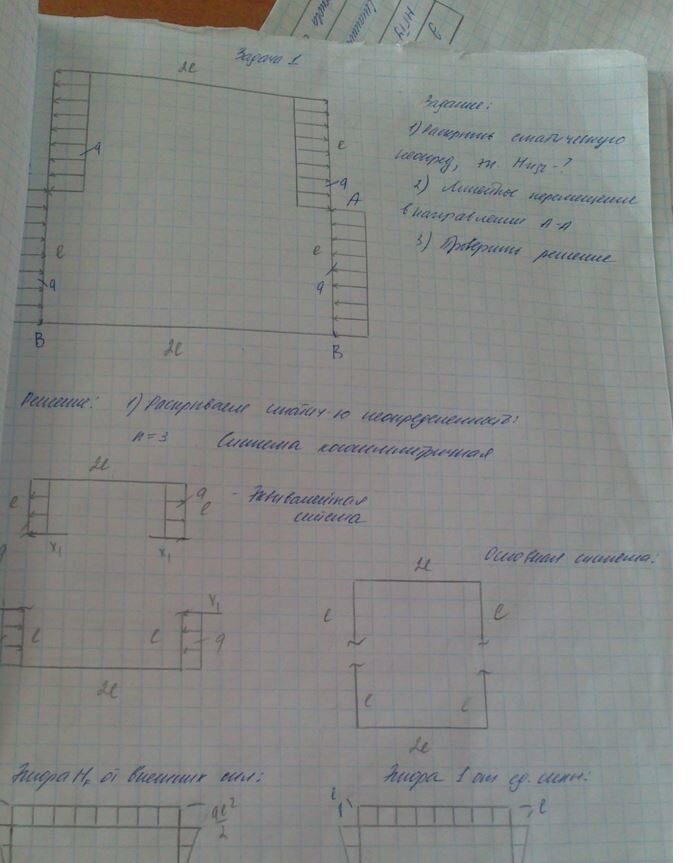 Задача 1
2ℓ
ℓ
q
q
A
ℓ
ℓ
q
q
B
2ℓ
B
Задание:
1) Раскрыть статическую
неопред, т.
2) Линейное перемещение
в направлении A-A
3) Проверить решение
Решение: 1) Раскрываем статич-ю неопределенность:
n=3 Система кососимметричная
2ℓ
ℓ
q
ℓ
x₁
x₁
- Эквивалентная
система
Основная система:
x₁
ℓ
ℓ
q
2ℓ
2ℓ
ℓ
ℓ
ℓ
ℓ
2ℓ
Эпюра от внешних сил:
qℓ²/2
Эпюра 1 от ед. силы:
ℓ
ℓ